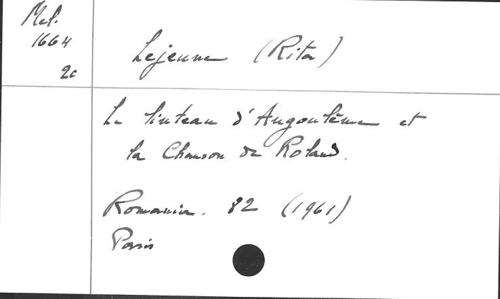 Mel.
1664
20
Lejeune (Rita)
Le linteau d'Angoulême et
la Chanson de Roland.
Romania. 82 (1961)
Paris